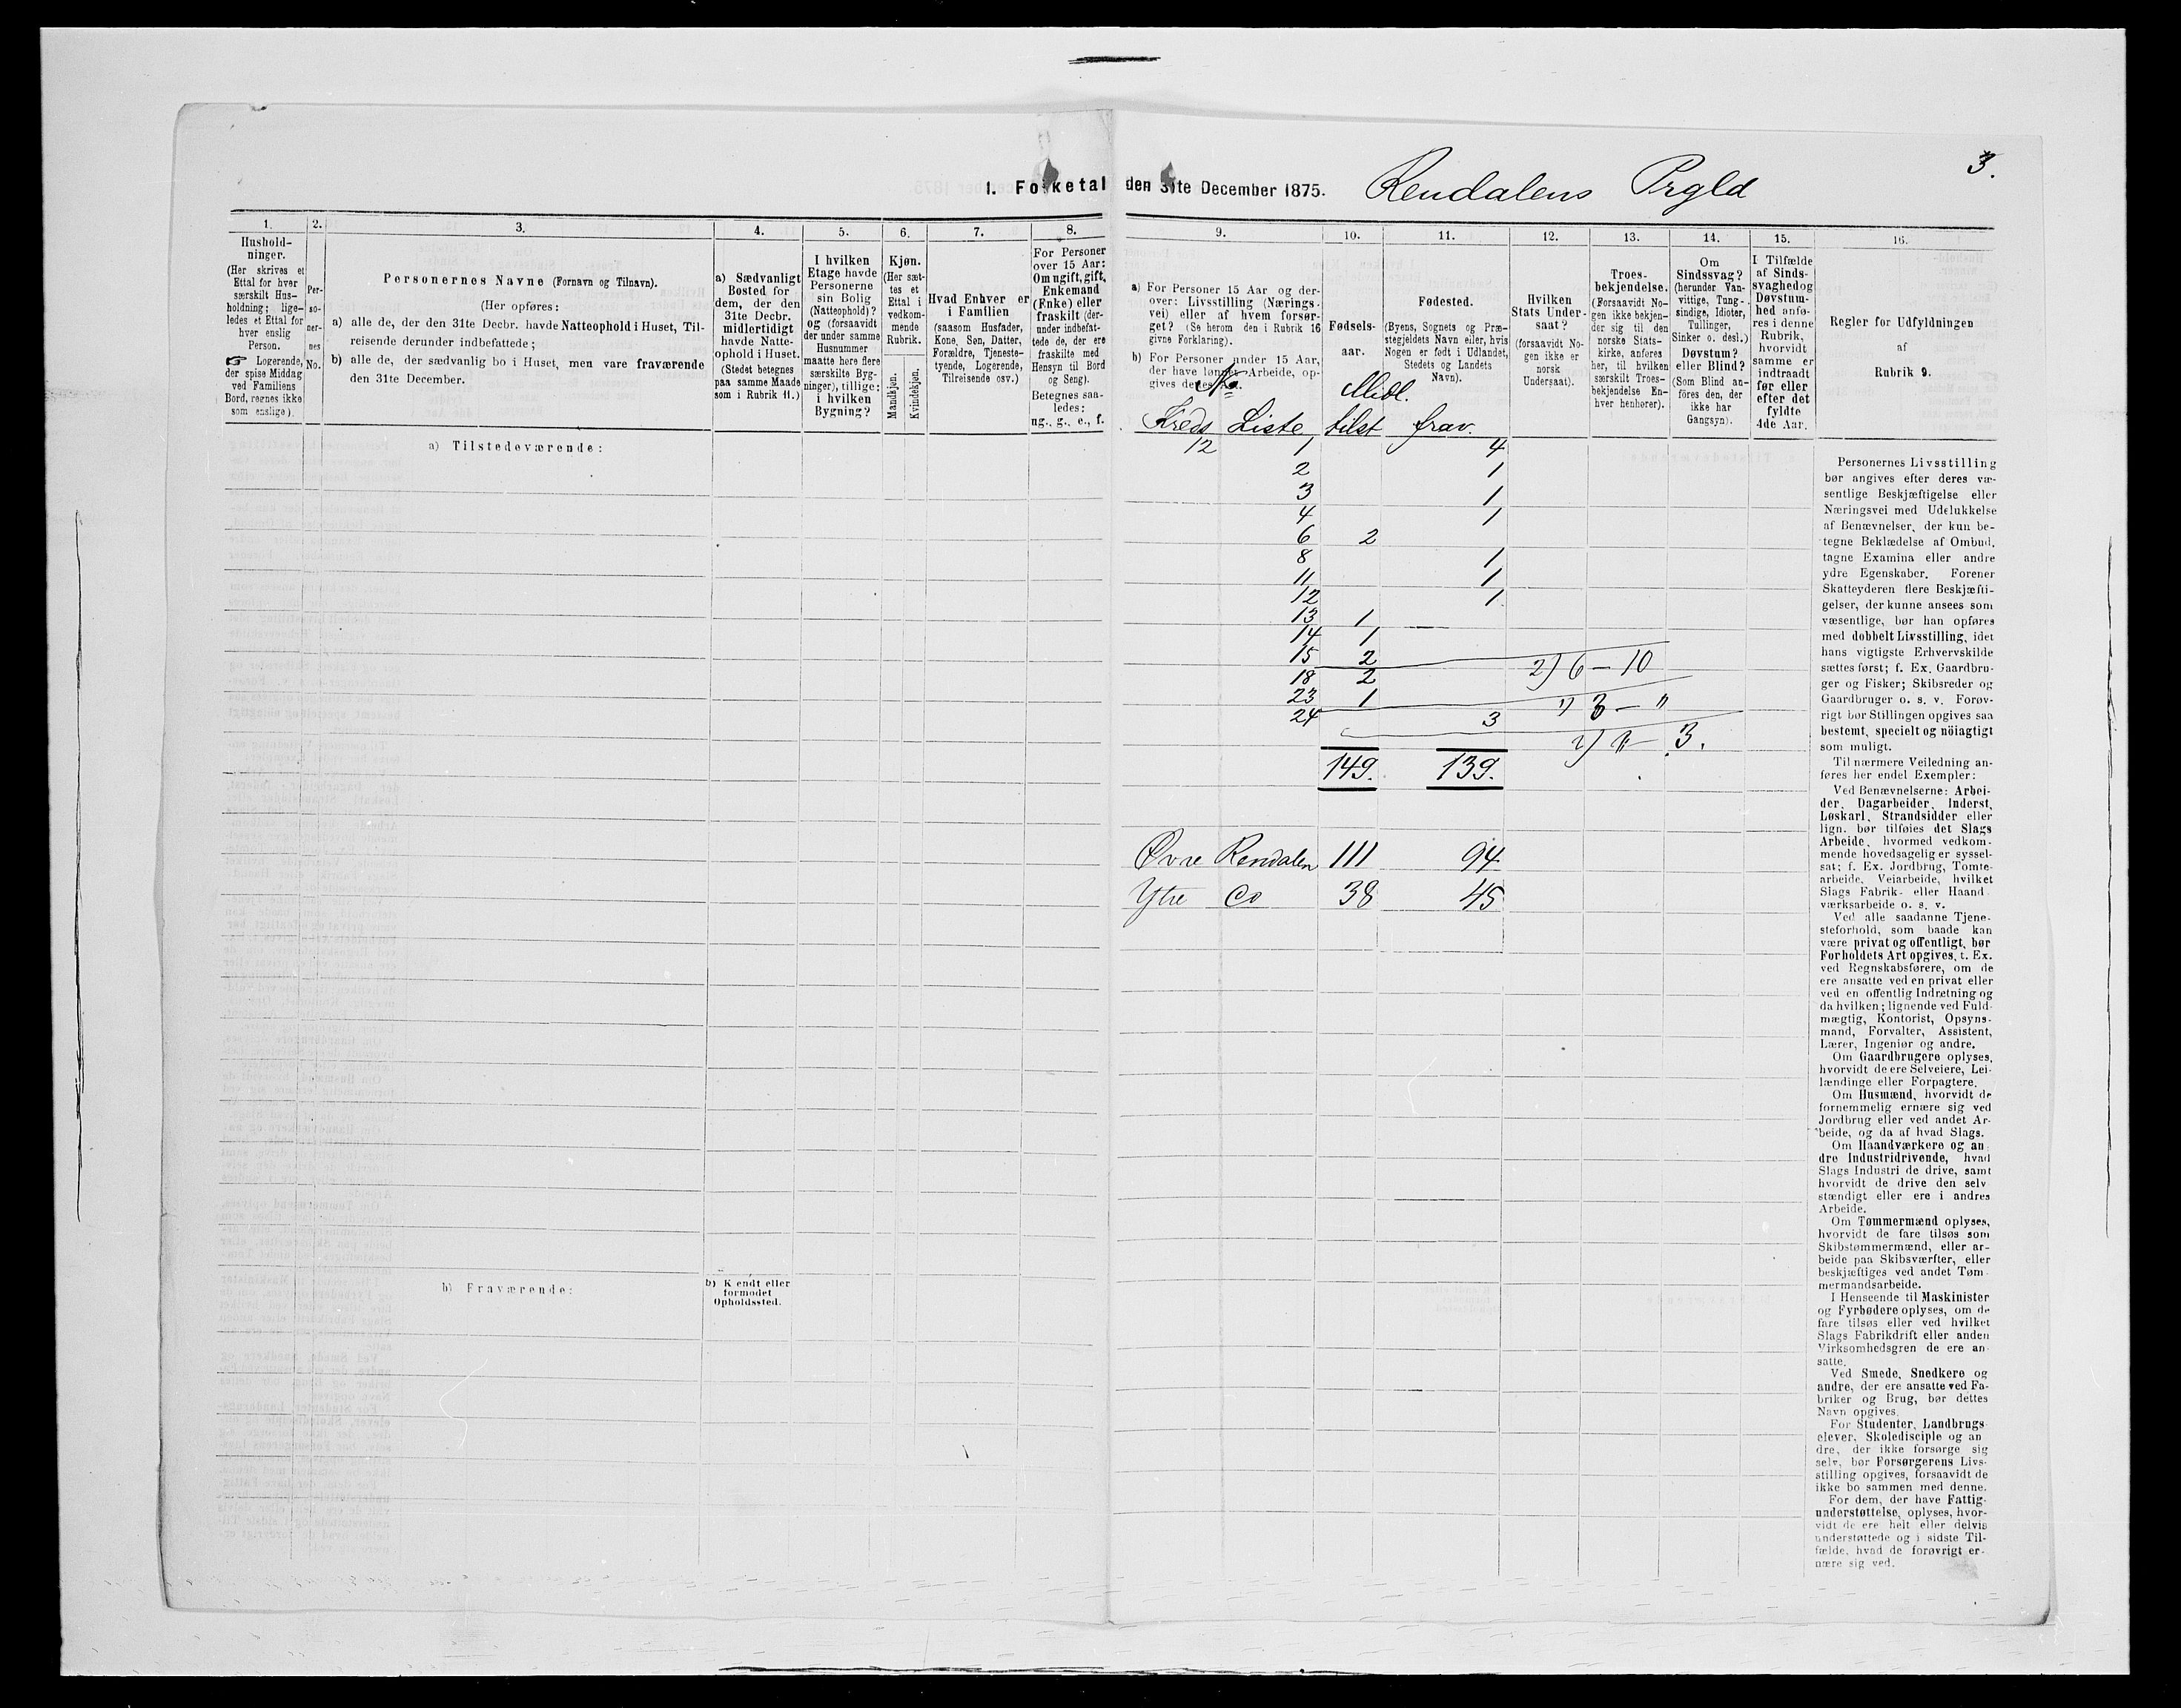 3.
1. Folketal den 31te December 1875. Rendalens Prgld
1.
2.
3.
4.
5.
6.
7.
8.
9.
10.
11.
12.
13.
14.
15.
16.
Hushold-
ninger.
(Her skrives et
Ettal for hver
særskilt Hus-
holdning; lige-
ledes et Ettal for
hver enslig
Person.
☞ Logerende,
der spise Middag
ved Familiens
Bord, regnes ikke
som enslige).
Per-
so-
ner-
nes
No.
Personernes Navne (Fornavn og Tilnavn).
(Her opføres:
a) alle de, der den 31te Decbr. havde Natteophold i Huset, Til-
reisende derunder indbefattede;
b) alle de, der sædvanlig bo i Huset, men vare fraværende
den 31te December.
a) Sædvanligt
Bosted for
dem, der den
31te Decbr.
midlertidigt
havde Natte-
ophold i Huset.
(Stedet betegnes
paa samme Maade
som i Rubrik 11.)
I hvilken
Etage havde
Personerne
sin Bolig
(Natteophold)?
og (forsaavidt
der under samme
Husnummer
maatte høre flere
særskilte Byg-
ninger), tillige:
i hvilken
Bygning?
Kjøn.
(Her sæt-
tes et
Ettal i
vedkom-
mende
Rubrik.
Mandkjøn.
Kvindekjøn.
Hvad Enhver er
i Familien
(saasom Husfader,
Kone, Søn, Datter,
Forældre, Tjeneste-
tyende, Logerende,
Tilreisende osv.)
For Personer
over 15 Aar:
Om ugift, gift,
Enkemand
(Enke) eller
fraskilt (der-
under indbefat-
tede de, der ere
fraskilte med
Hensyn til Bord
og Seng).
Betegnes saa-
ledes:
ug., g., e., f.
a) For Personer 15 Aar og der-
over: Livsstilling (Nærings-
vei) eller af hvem forsør-
get? (Se herom den i Rubrik 16
givne Forklaring).
b) For Personer under 15 Aar,
der have lønnet Arbeide, op-
gives dettes Art.
Fødsels-
aar.
Fødested.
(Byens, Sognets og Præ-
stegjeldets Navn eller, hvis
Nogen er født i Udlandet,
Stedets og Landets
Navn).
Hvilken
Stats Under-
saat?
(forsaavidt No-
gen ikke er
norsk
Undersaat).
Troes-
bekjendelse.
(Forsaavidt No-
gen ikke bekjen-
der sig til den
norske Stats-
kirke, anføres
her, til hvilken
særskilt Troes-
bekjendelse En-
hver henhører).
Om
Sindssvag?
(herunder Van-
vittige, Tung-
sindige, Idioter,
Tullinger,
Sinker o. desl.)
Døvstum?
eller Blind?
(Som Blind an-
føres den, der
ikke har
Gangsyn).
I Tilfælde
af Sinds-
svaghed og
Døvstum-
hed anfø-
res i denne
Rubrik,
hvorvidt
samme er
indtraadt
før eller
efter det
fyldte
4de Aar.
Regler for Udfyldningen
af
Rubrik 9.
Midl.
Kreds Liste tilst frav.
a) Tilstedeværende:
12 1 4
2 1
3 1
4 1
6 2
8 1
11 1
12 1
13 1
14 1
15 2 2) 6 — 10
18 2
23 1 3 — "
24 3
3.
149. 139.
Øvre Rendalen 111 94
Ytre Co 38 45
b) Fraværende:
b) Kjendt eller
formodet
Opholdssted.
Personernes Livsstilling
bør angives efter deres væ-
sentlige Beskjæftigelse eller
Næringsvei med Udelukkelse
af Benævnelser, der kun be-
tegne Beklædelse af Ombud,
tagne Examina eller andre
ydre Egenskaber. Forener
Skatteyderen flere Beskjæfti-
gelser, der kunne ansees som
væsentlige, bør han opføres
med dobbelt Livsstilling, idet
hans vigtigste Erhvervskilde
sættes først; f. Ex. Gaardbru-
ger og Fisker; Skibsreder og
Gaardbruger o. s. v. Forøv-
rigt bør Stillingen opgives saa
bestemt, specielt og nöiagtigt
som muligt.
Til nærmere Veiledning an-
føres her endel Exempler:
Ved Benævnelserne: Arbei-
der, Dagarbeider, Inderst,
Løskarl, Strandsidder eller
lign. bør tilføies det Slags
Arbeide, hvormed vedkom-
mende hovedsagelig er syssel-
sat; f. Ex. Jordbrug, Tomte-
arbeide, Veiarbeide, hvilket
Slags Fabrik- eller Haand-
værksarbeide o. s. v.
Ved alle saadanne Tjene-
steforhold, som baade kan
være privat og offentligt, bør
Forholdets Art opgives, t. Ex.
ved Regnskabsførere, om de
ere ansatte ved en privat eller
ved en offentlig Indretning og
da hvilken; lignende ved Fuld-
mægtig, Kontorist, Opsyns-
mand, Forvalter, Assistent,
Lærer, Ingeniør og andre.
Om Gaardbrugere oplyses,
hvorvidt de ere Selveiere, Lei-
lændinge eller Forpagtere.
Om Husmænd, hvorvidt de
fornemmelig ernære sig ved
Jordbrug eller ved andet Ar-
beide, og da af hvad Slags.
Om Haandværkere og an-
dre Industridrivende, hvad
Slags Industri de drive, samt
hvorvidt de drive den selv-
stændigt eller ere i andres
Arbeide.
Om Tømmermænd oplyses,
hvorvidt de fare tilsøs som
Skibstømmermænd, eller ar-
beide paa Skibsværfter, eller
beskjæftiges ved andet Tøm-
mermandsarbeide.
I Henseende til Maskinister
og Fyrbødere oplyses, om de
fare tilsøs eller ved hvilket
Slags Fabrikdrift eller anden
Virksomhedsgren de ere an-
satte.
Ved Smede, Snedkere og
andre, der ere ansatte ved Fa-
briker og Brug, bør dettes
Navn opgives.
For Studenter, Landbrugs-
elever, Skoledisciple og an-
dre, der ikke forsørge sig
selv, bør Forsørgerens Livs-
stilling opgives, forsaavidt de
ikke bo sammen med denne.
For dem, der have Fattig-
understøttelse, oplyses, hvor-
vidt de ere helt eller delvis
understøttede og i sidste Til-
fælde, hvad de forøvrigt er-
nære sig ved.